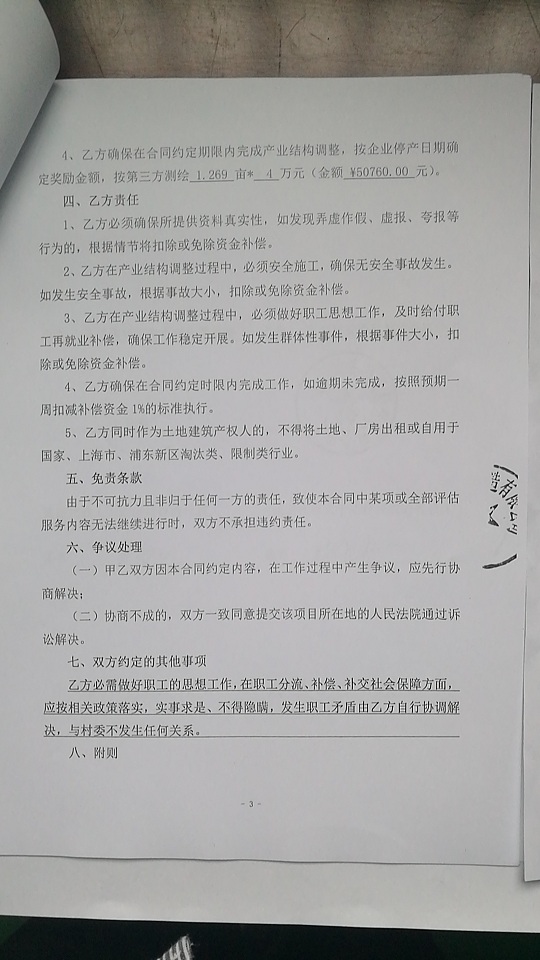 4、乙方确保在合同约定期限内完成产业结构调整，按企业停产日期确
定奖励金额，按第三方测绘 1.269 亩* 4 万元（金额 ¥50760.00 元）。
四、乙方责任
1、乙方必须确保所提供资料真实性，如发现弄虚作假、虚报、夸报等
行为的，根据情节将扣除或免除资金补偿。
2、乙方在产业结构调整过程中，必须安全施工，确保无安全事故发生。
如发生安全事故，根据事故大小，扣除或免除资金补偿。
3、乙方在产业结构调整过程中，必须做好职工思想工作，及时给付职
工再就业补偿，确保工作稳定开展。如发生群体性事件，根据事件大小，扣
除或免除资金补偿。
4、乙方确保在合同约定时限内完成工作，如逾期未完成，按照预期一
周扣减补偿资金 1%的标准执行。
5、乙方同时作为土地建筑产权人的，不得将土地、厂房出租或自用于
国家、上海市、浦东新区淘汰类、限制类行业。
五、免责条款
由于不可抗力且非归于任何一方的责任，致使本合同中某项或全部评估
服务内容无法继续进行时，双方不承担违约责任。
六、争议处理
（一）甲乙双方因本合同约定内容，在工作过程中产生争议，应先行协
商解决；
（二）协商不成的，双方一致同意提交该项目所在地的人民法院通过诉
讼解决。
七、双方约定的其他事项
乙方必需做好职工的思想工作，在职工分流、补偿、补交社会保障方面，
应按相关政策落实，实事求是、不得隐瞒，发生职工矛盾由乙方自行协调解
决，与村委不发生任何关系。
八、附则
- 3 -